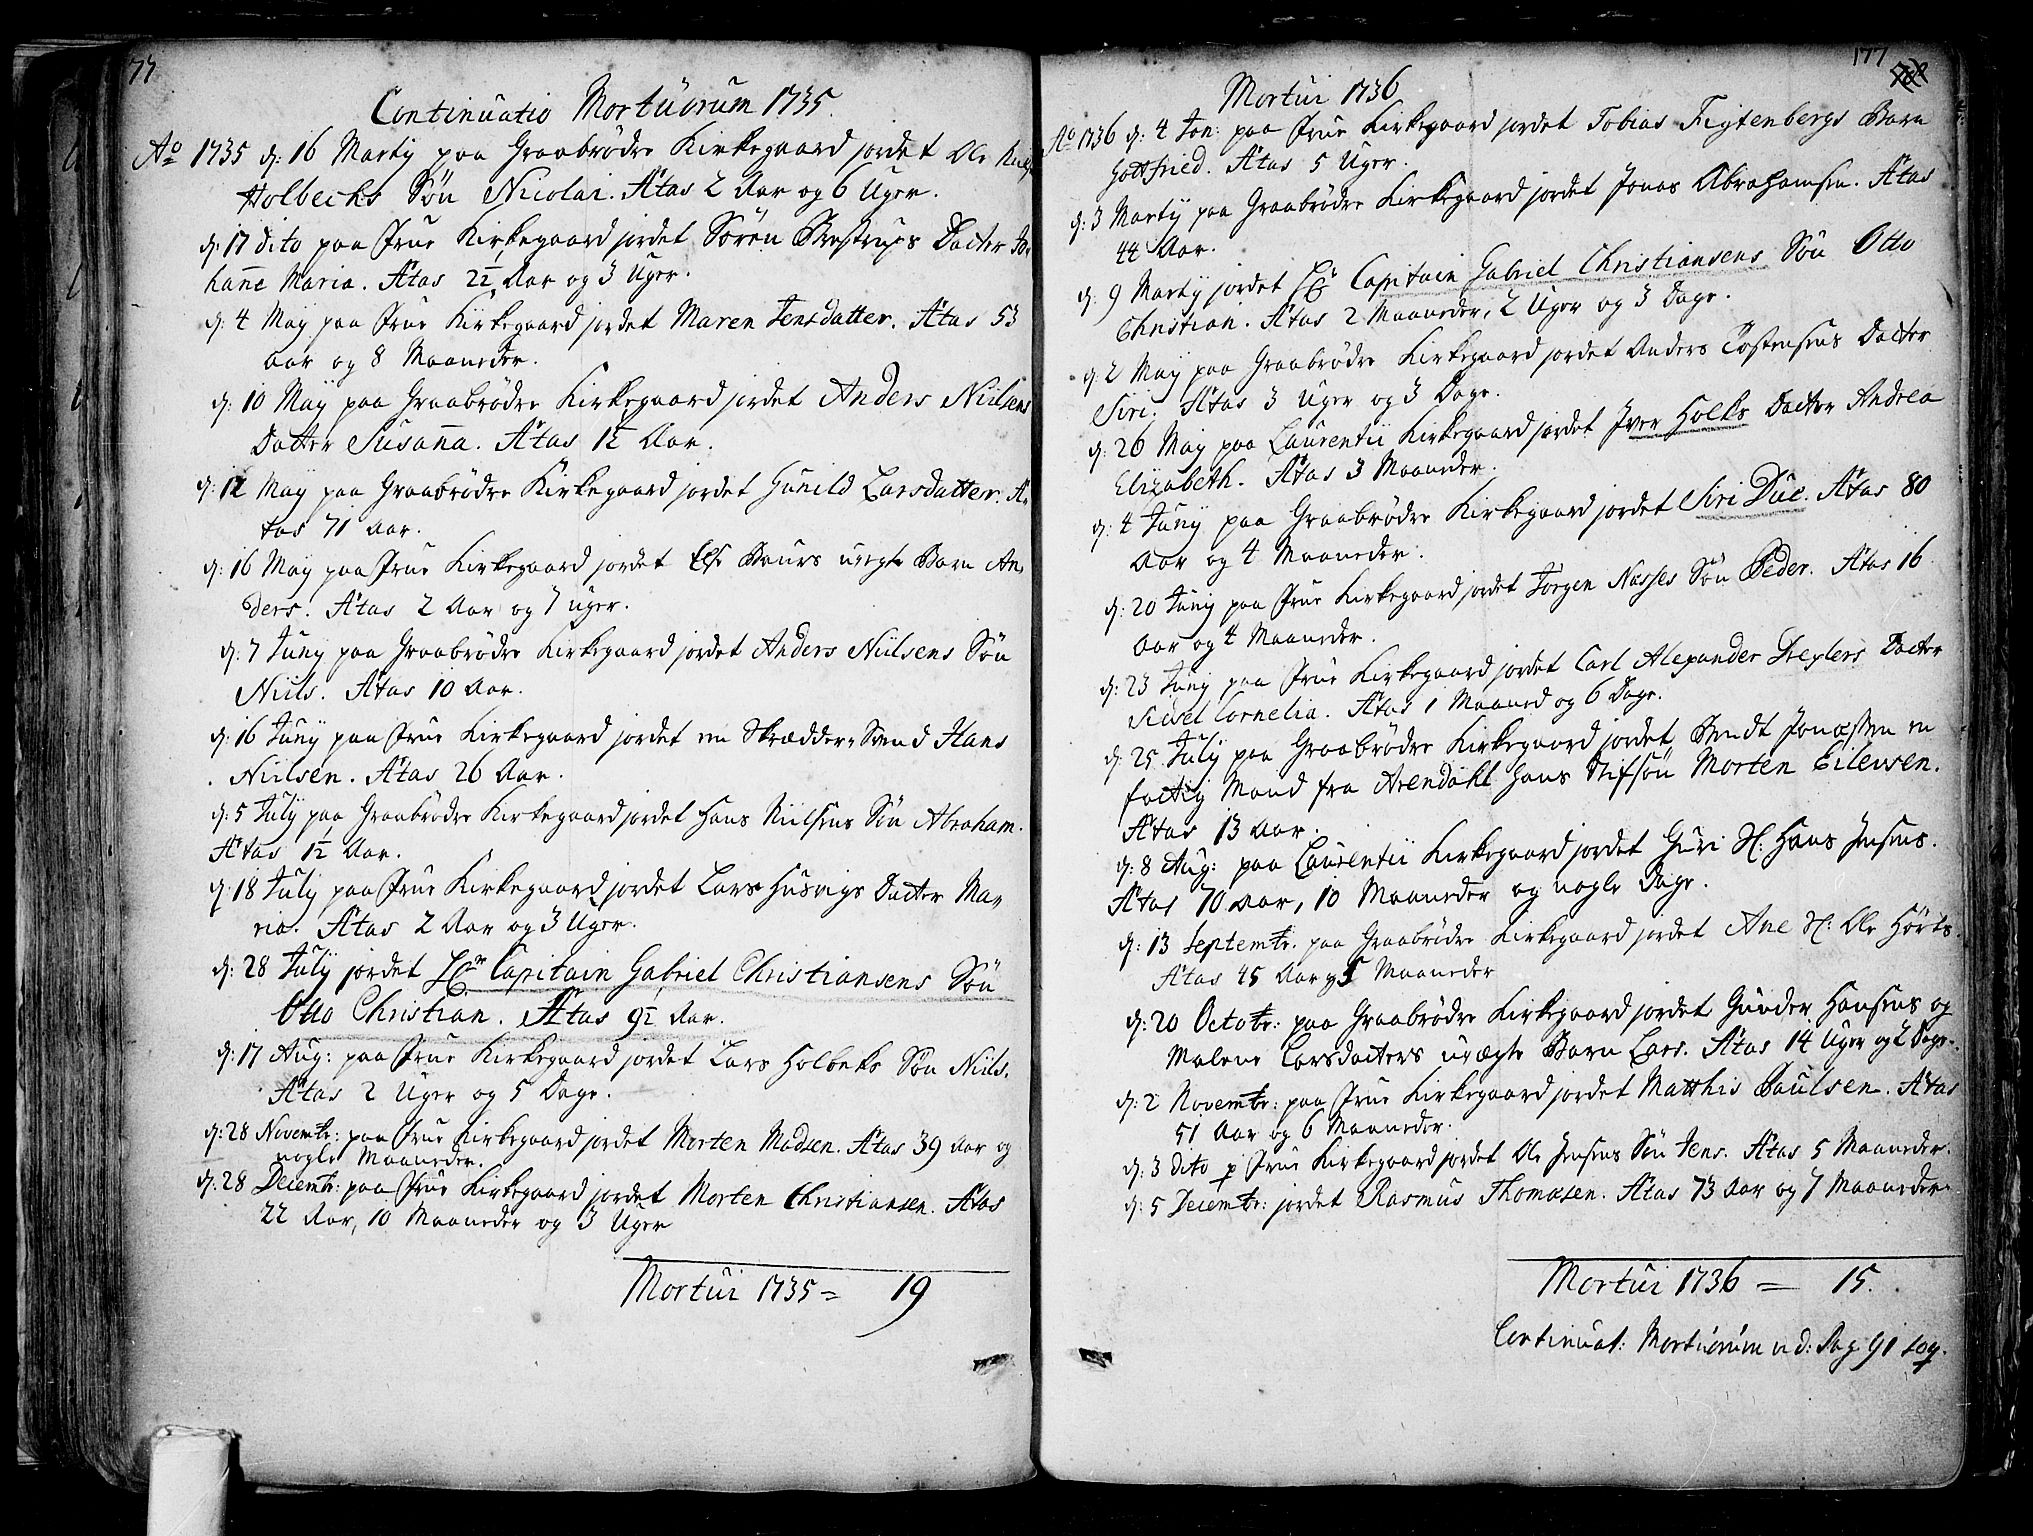 77
Continuatio Mortuorum 1735.
Ao 1735 d: 16 Martij paa Graabrødre Kirkegaard jordet Ole
Holbechs Søn Nicolai. Ætas 2 Aar og 6 Uger.
d: 17 dito paa Frue Kirkegaard jordet Sören Brestrups Dacter Jo-
hañe Maria. Ætas 2½ Aar og 3 Uger.
d: 4 Maij paa Frue Kirkegaard jordet Maren Jensdatter. Ætas 53
aar og 8 Maaneder.
d: 10 Maij paa Graabrødre Kirkegaard jordet Anders Niilsens
Datter Susaña. Ætas 1½ Aar.
d: 12 Maij paa Graabrødre Kirkegaard jordet Gunild Larsdatter. Æ-
tas 71 Aar.
d: 16 Maij paa Frue Kirkegaard jordet Else uegte Barn An-
ders. Ætas 2 Aar og 7 uger.
d: 7 Junij paa Graabrødre Kirkegaard jordet Anders Niilsens Søn
Niils. Ætas 10 Aar.
d: 16 Junij paa Frue Kirkegaard jordet en Skrædder-Svend Hans
Niilsen. Ætas 26 Aar.
d: 5 Julij paa Graabrødre Kirkegaard jordet Hans Niilsens Søn Abraham.
Ætas 1½ Aar.
d: 18 Julij paa Frue Kirkegaard jordet Lars Husvigs Dacter Ma-
ria. Ætas 2 Aar og 3 Uger.
d: 28 Julij jordet Hr Capitain Gabriel Christiansens Søn
Otto Christian. Ætas 9½ Aar.
d: 17 Aug: paa Frue Kirkegaard jordet Lars Holbeks Søn Niils.
Ætas 2 Uger og 5 Dage.
d: 28 Novembr: paa Frue Kirkegaard jordet Morten Madsen. Ætas 39 Aar og
nogle Maaneder.
d: 28 Decembr: paa Frue Kirkegaard jordet Morten Christiansen. Ætas
22 Aar, 10 Maaneder og 3 Uger
Mortui 1735 = 19
177
Mortui 1736
Ao 1736 d: 4 Jan: paa Frue Kirkegaard jordet Tobias Figtenbergs Barn
Gottfried. Ætas 5 Uger.
d: 3 Martij paa Graabrødre Kirkegaard jordet Jonas Abrahamsen. Ætas
44 Aar.
d: 9 Martij jordet Hr Capitain Gabriel Christiansens Søn Otto
Christian. Ætas 2 Maaneder, 2 Uger og 3 Dage.
d: 2 Maij paa Graabrødre Kirkegaard jordet Anders Tostensens Dacter
Siri. Ætas 3 Uger og 3 Dage.
d: 26 Maij paa Laurentii Kirkegaard jordet Iver Holks Dacter Andrea
Elizabeth. Ætas 3 Maaneder.
d: 4 Junij paa Graabrødre Kirkegaard jordet Siri Due. Ætas 80
Aar og 4 Maaneder.
d: 20 Junij paa Frue Kirkegaard jordet Jörgen Nasses Søn Peder. Ætas 16
Aar og 4 Maaneder.
d: 23 Junij paa Frue Kirkegaard jordet Carl Alexander Drexlers Dacter
Sidsel Cornelia. Ætas 1 Maaned og 6 Dage.
d: 25 Julij paa Graabrødre Kirkegaard jordet Bendt Jonassen en
fattig Mand fra Arendahl hans Stifsøn Morten Eilevsen.
Ætas 13 Aar.
d: 8 Aug: paa Laurentii Kirkegaard jordet Guri Sl: Hans Jensens.
Ætas 70 Aar, 10 Maaneder og nogle Dage.
d: 13 Septembr. paa Graabrødre Kirkegaard jordet Ane Sl: Ole Hörts.
Ætas 45 Aar og 5 Maaneder
d: 20 Octobr: paa Graabrødre Kirkegaard jordet Gunder Hansens og
Malene Larsdacters uægte Barn Lars. Ætas 14 Uger og 2 Dage.
d: 2 Novembr: paa Frue Kirkegaard jordet Matthis Paulsen. Ætas
51 Aar og 6 Maaneder.
d: 3 dito p Frue Kirkegaard jordet Ole Jensens Søn Jens. Ætas 5 Maaneder.
d: 5 Decembr: jordet Rasmus Thomasen. Ætas 73 Aar og 7 Maaneder.
Mortui 1736 = 15.
Continuat: Mortuorum v d: Pag 91 seq.